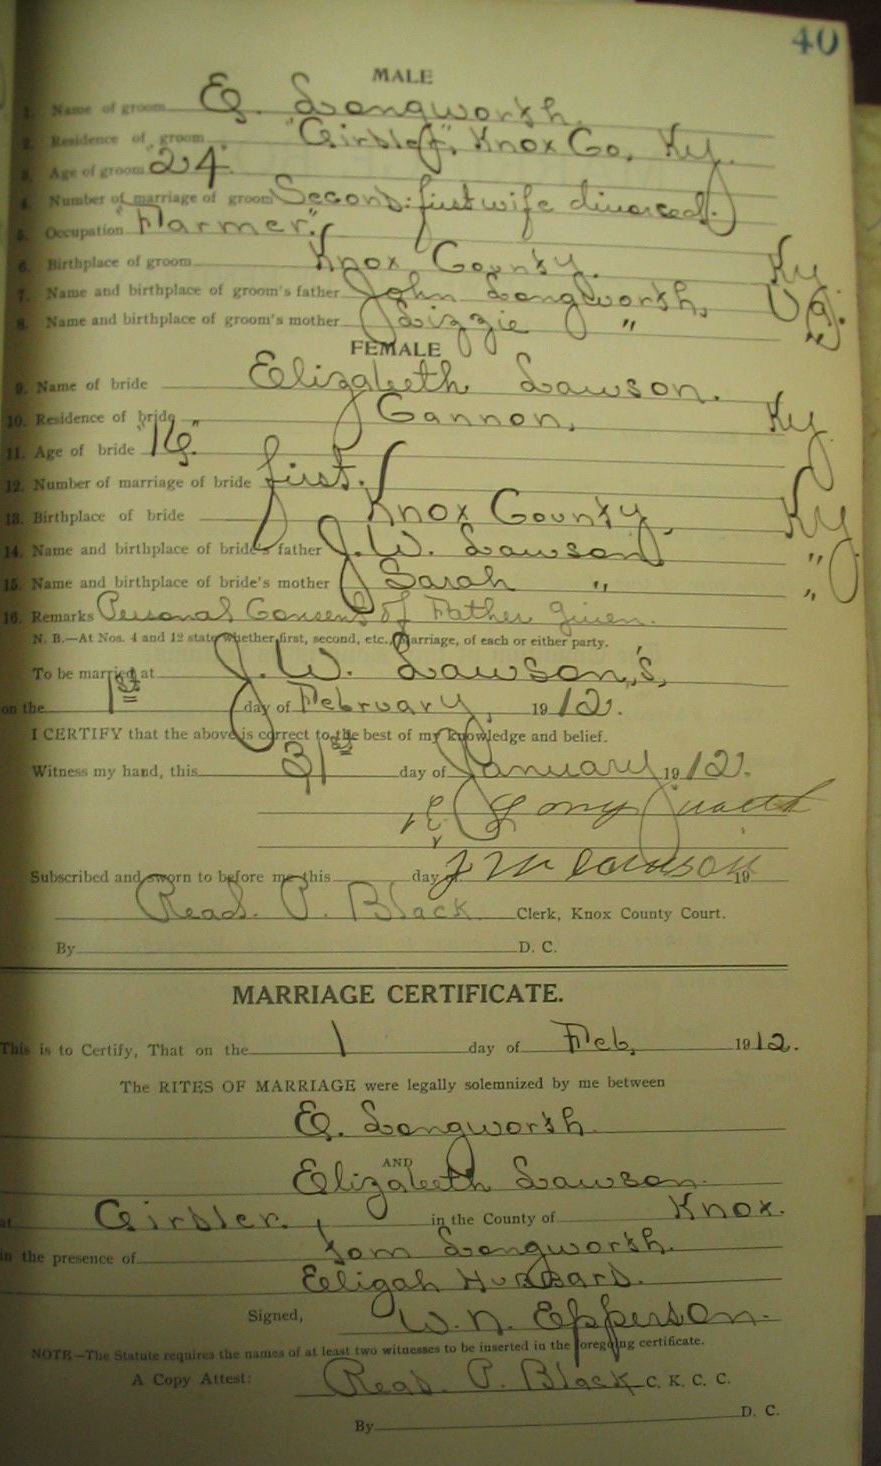 40
MALE
1. Name of groom E. Longworth.
2. Residence of groom "Girdler", Knox Co, Ky.
3. Age of groom "24".
4. Number of marriage of groom Second: first wife divorced.
5. Occupation "Farmer".
6. Birthplace of groom Knox County. Ky
7. Name and birthplace of groom's father John Longworth, Va.
8. Name and birthplace of groom's mother Lizzie " "
FEMALE
9. Name of bride Elizabeth Lawson.
10. Residence of bride Cannon, Ky
11. Age of bride "16".
12. Number of marriage of bride first.
13. Birthplace of bride Knox County, Ky
14. Name and birthplace of bride's father J. W. Lawson "
15. Name and birthplace of bride's mother Sarah " "
16. Remarks Personal Consent of Father given.
N. B.—At Nos. 4 and 12 state whether first, second, etc., marriage, of each or either party.
To be married at J. W. Lawson's,
on the 1st day of February, 1912.
I CERTIFY that the above is correct to the best of my knowledge and belief.
Witness my hand, this 31st day of January 1912.
J W Lawson
Subscribed and sworn to before me this day of 19
Read. P. Black Clerk, Knox County Court.
By D. C.
MARRIAGE CERTIFICATE.
This is to Certify, That on the 1 day of Feb, 1912.
The RITES OF MARRIAGE were legally solemnized by me between
E. Longworth.
AND
Elizabeth Lawson.
at Girdler, in the County of Knox.
in the presence of Tom Longworth.
Eligah Hubbard.
Signed, W. N. Epperson.
NOTE—The Statute requires the names of at least two witnesses to be inserted in the foregoing certificate.
A Copy Attest: Read. P. Black C. K. C. C.
By D. C.